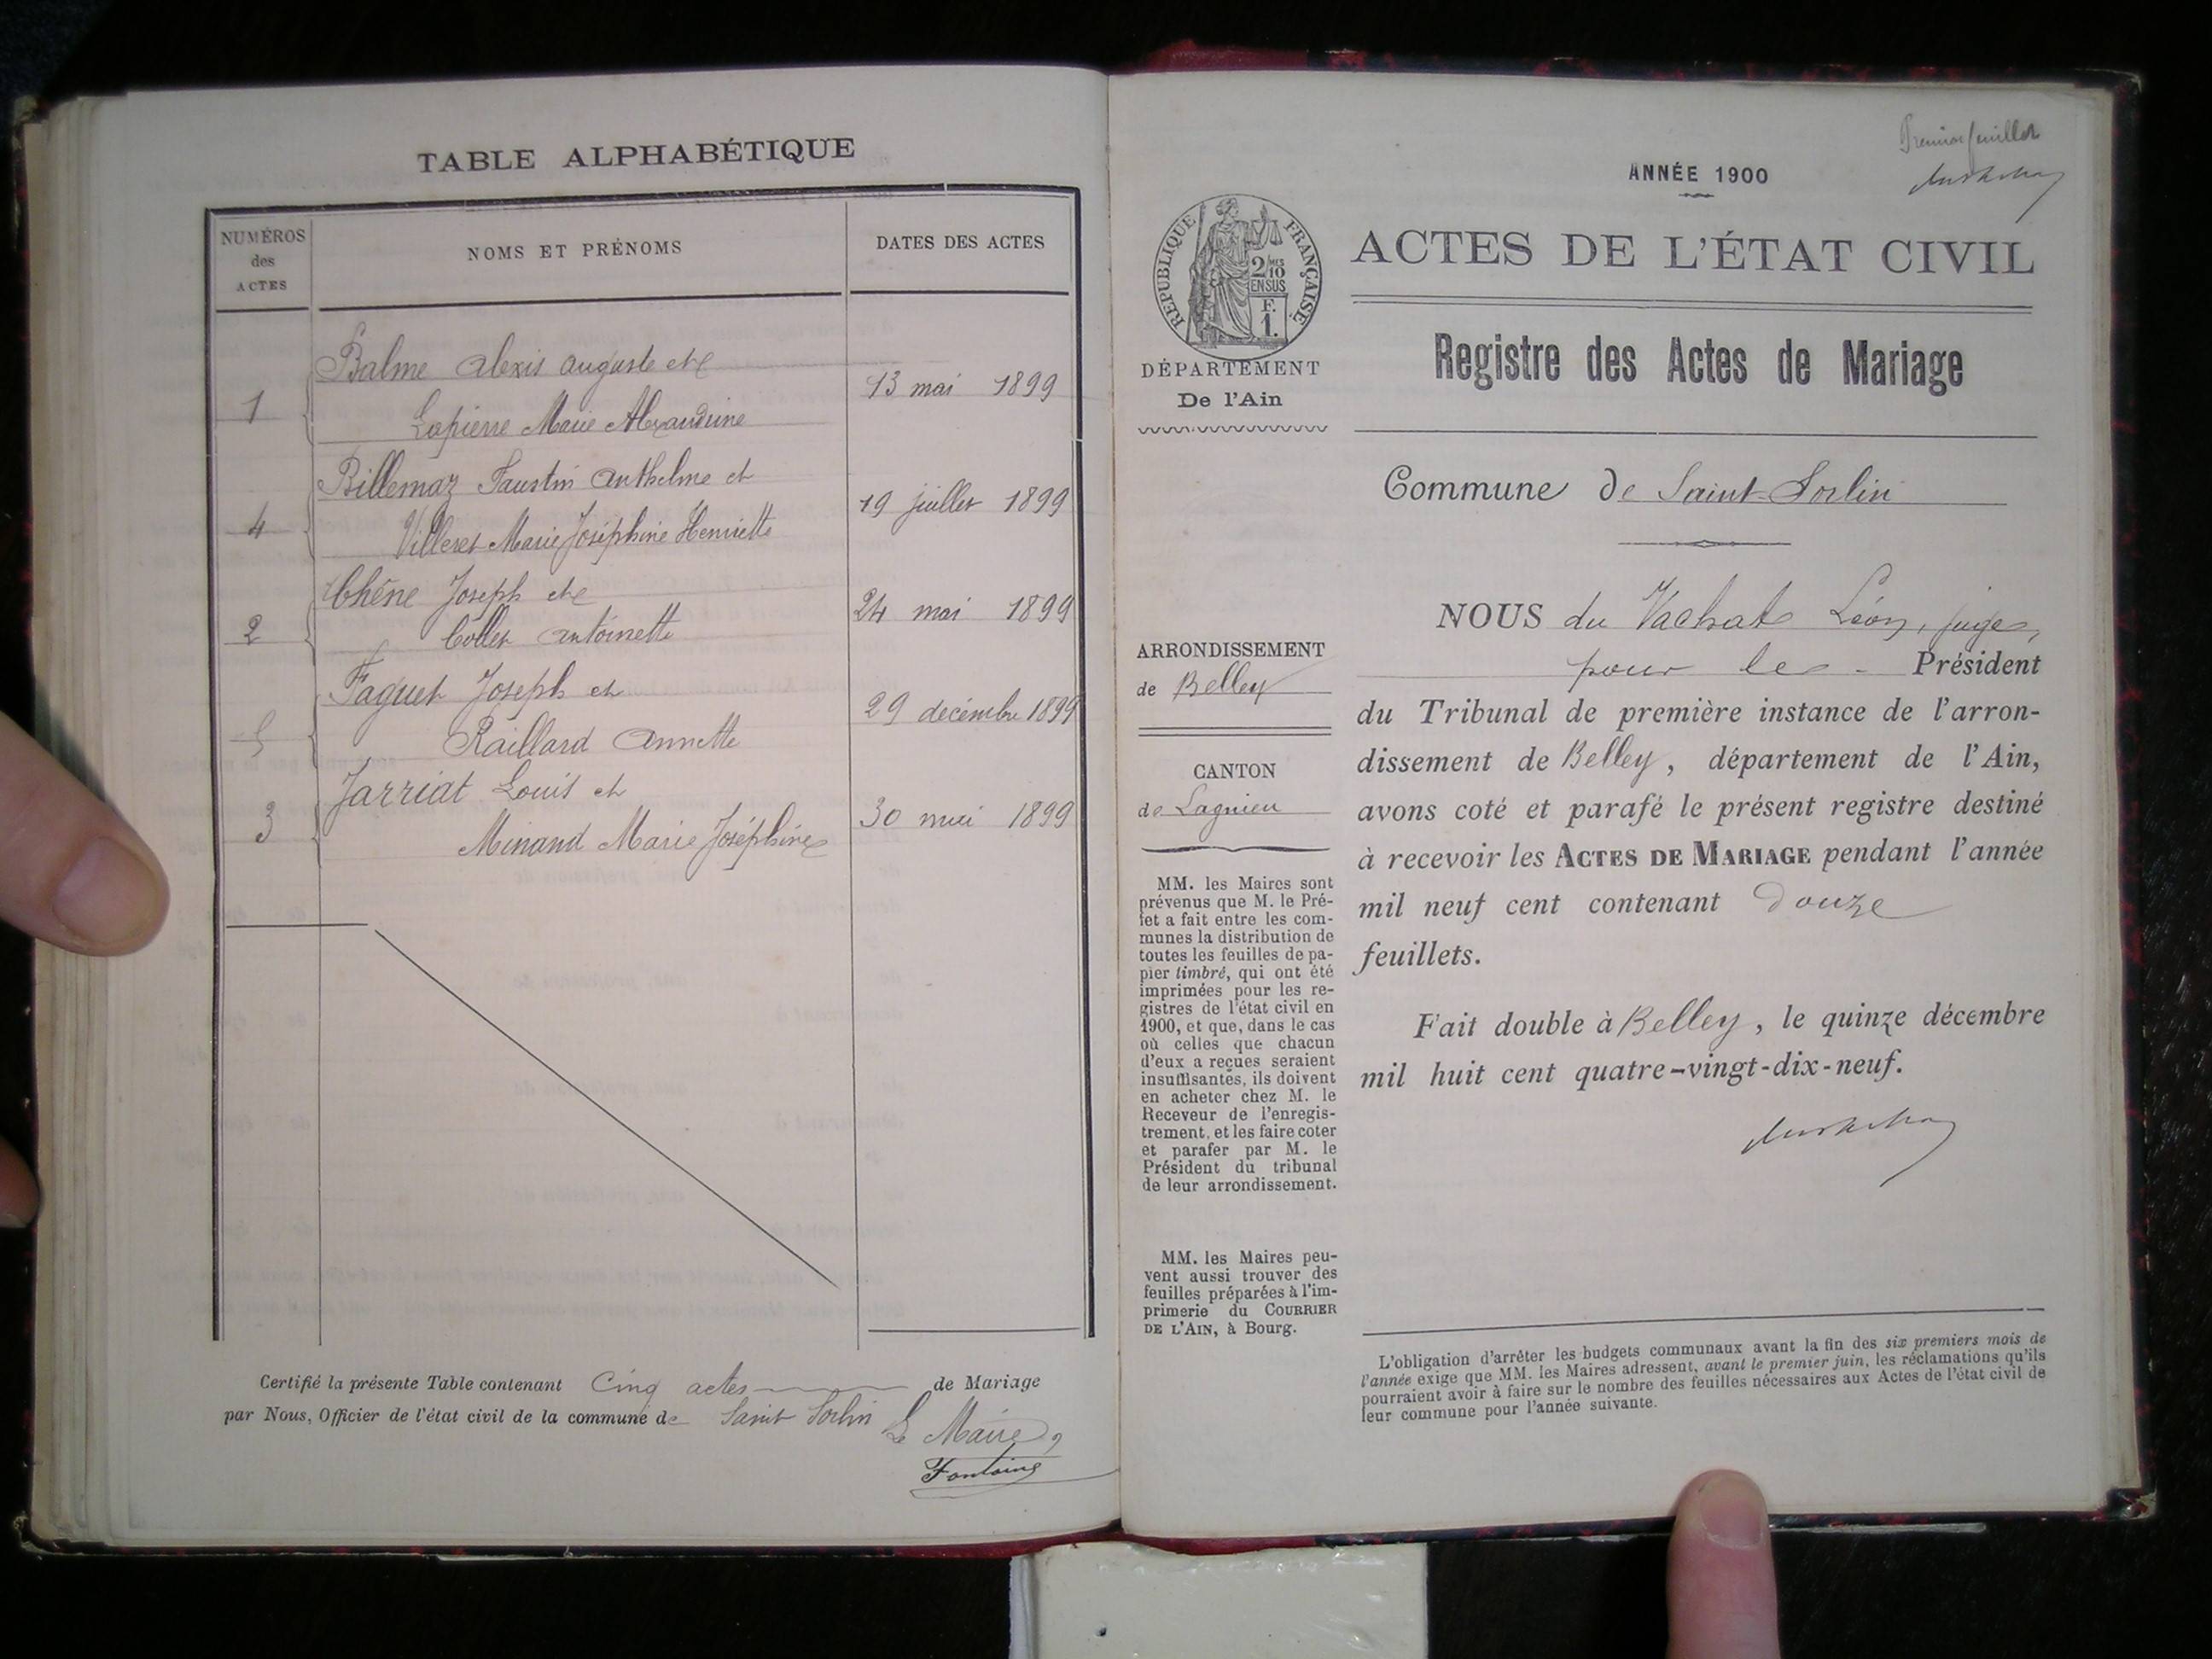 TABLE ALPHABÉTIQUE
NUMÉROS
des
ACTES
NOMS ET PRÉNOMS
DATES DES ACTES
Balme Alexis Auguste et
1
Lapierre Marie Alexandrine
13 mai 1899
Billemaz Faustin Anthelme et
4
Villeret Marie Joséphine Henriette
19 juillet 1899
Chêne Joseph et
2
Collet Antoinette
24 mai 1899
Faguet Joseph et
5
Raillard Annette
29 décembre 1899
Jarriat Louis et
3
Minand Marie Joséphine
30 mai 1899
Certifié la présente Table contenant Cinq actes de Mariage
par Nous, Officier de l'état civil de la commune de Saint Sorlin
Le Maire,
Fontaine
Premier feuillet
ANNÉE 1900
RÉPUBLIQUE FRANÇAISE
2/10 MES
EN SUS
F.
1.
ACTES DE L'ÉTAT CIVIL
Registre des Actes de Mariage
DÉPARTEMENT
De l'Ain
Commune de Saint-Sorlin
ARRONDISSEMENT
de Belley
CANTON
de Lagnieu
MM. les Maires sont
prévenus que M. le Pré-
fet a fait entre les com-
munes la distribution de
toutes les feuilles de pa-
pier timbré, qui ont été
imprimées pour les re-
gistres de l'état civil en
1900, et que, dans le cas
où celles que chacun
d'eux a reçues seraient
insuffisantes, ils doivent
en acheter chez M. le
Receveur de l'enregis-
trement, et les faire coter
et parafer par M. le
Président du tribunal
de leur arrondissement.
MM. les Maires peu-
vent aussi trouver des
feuilles préparées à l'im-
primerie du COURRIER
DE L'AIN, à Bourg.
NOUS du Vachat Léon, juge,
pour le - Président
du Tribunal de première instance de l'arron-
dissement de Belley, département de l'Ain,
avons coté et parafé le présent registre destiné
à recevoir les ACTES DE MARIAGE pendant l'année
mil neuf cent contenant douze
feuillets.
Fait double à Belley, le quinze décembre
mil huit cent quatre-vingt-dix-neuf.
L'obligation d'arrêter les budgets communaux avant la fin des six premiers mois de
l'année exige que MM. les Maires adressent, avant le premier juin, les réclamations qu'ils
pourraient avoir à faire sur le nombre des feuilles nécessaires aux Actes de l'état civil de
leur commune pour l'année suivante.